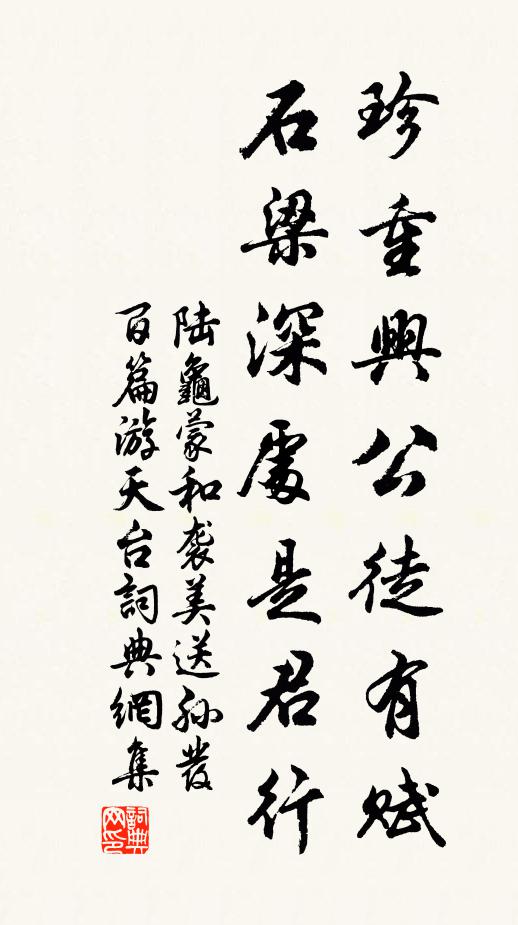 珍重興公徒有賦
石梁深處是君行
陆龜蒙和袭美送孙發
百篇游天台詞典網集
詞典網印